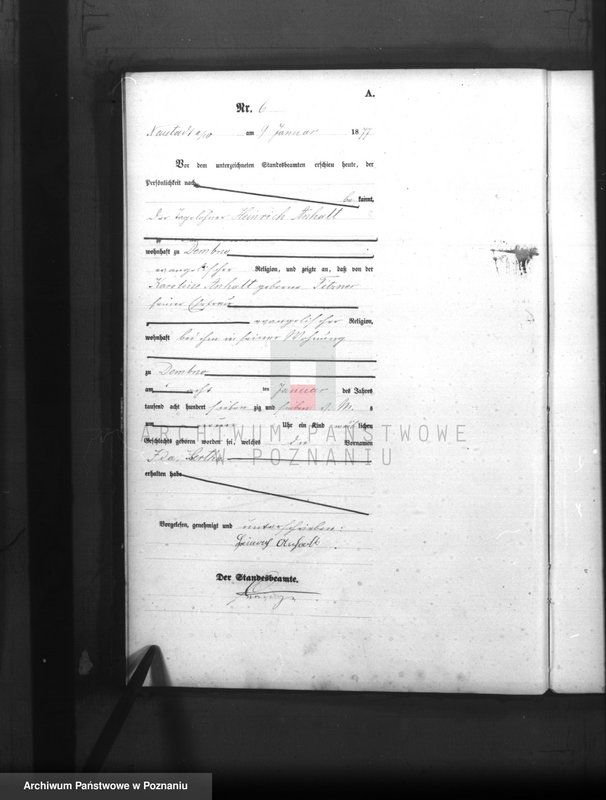 A.
Nr. 6
Neustadt a/W am 9 Januar 1877
Vor dem unterzeichneten Standesbeamten erschien heute, der
Persönlichkeit nach
be kannt,
der Tagelöhner Heinrich Anhalt
wohnhaft zu Dembno
evangelischer Religion, und zeigte an, daß von der
Karoline Anhalt geborene
seiner Ehefrau
evangelischer Religion,
wohnhaft bei ihm in seiner Wohnung
zu Dembno
am acht ten Januar des Jahres
tausend acht hundert sieben zig und sieben
um Uhr ein Kind weiblichen
Geschlechts geboren worden sei, welches die Vornamen
Ida,
erhalten habe
Vorgelesen, genehmigt und unterschrieben:
Heinrich Anhalt
Der Standesbeamte.
ARCHIWUM PAŃSTWOWE
W POZNANIU
Archiwum Państwowe w Poznaniu